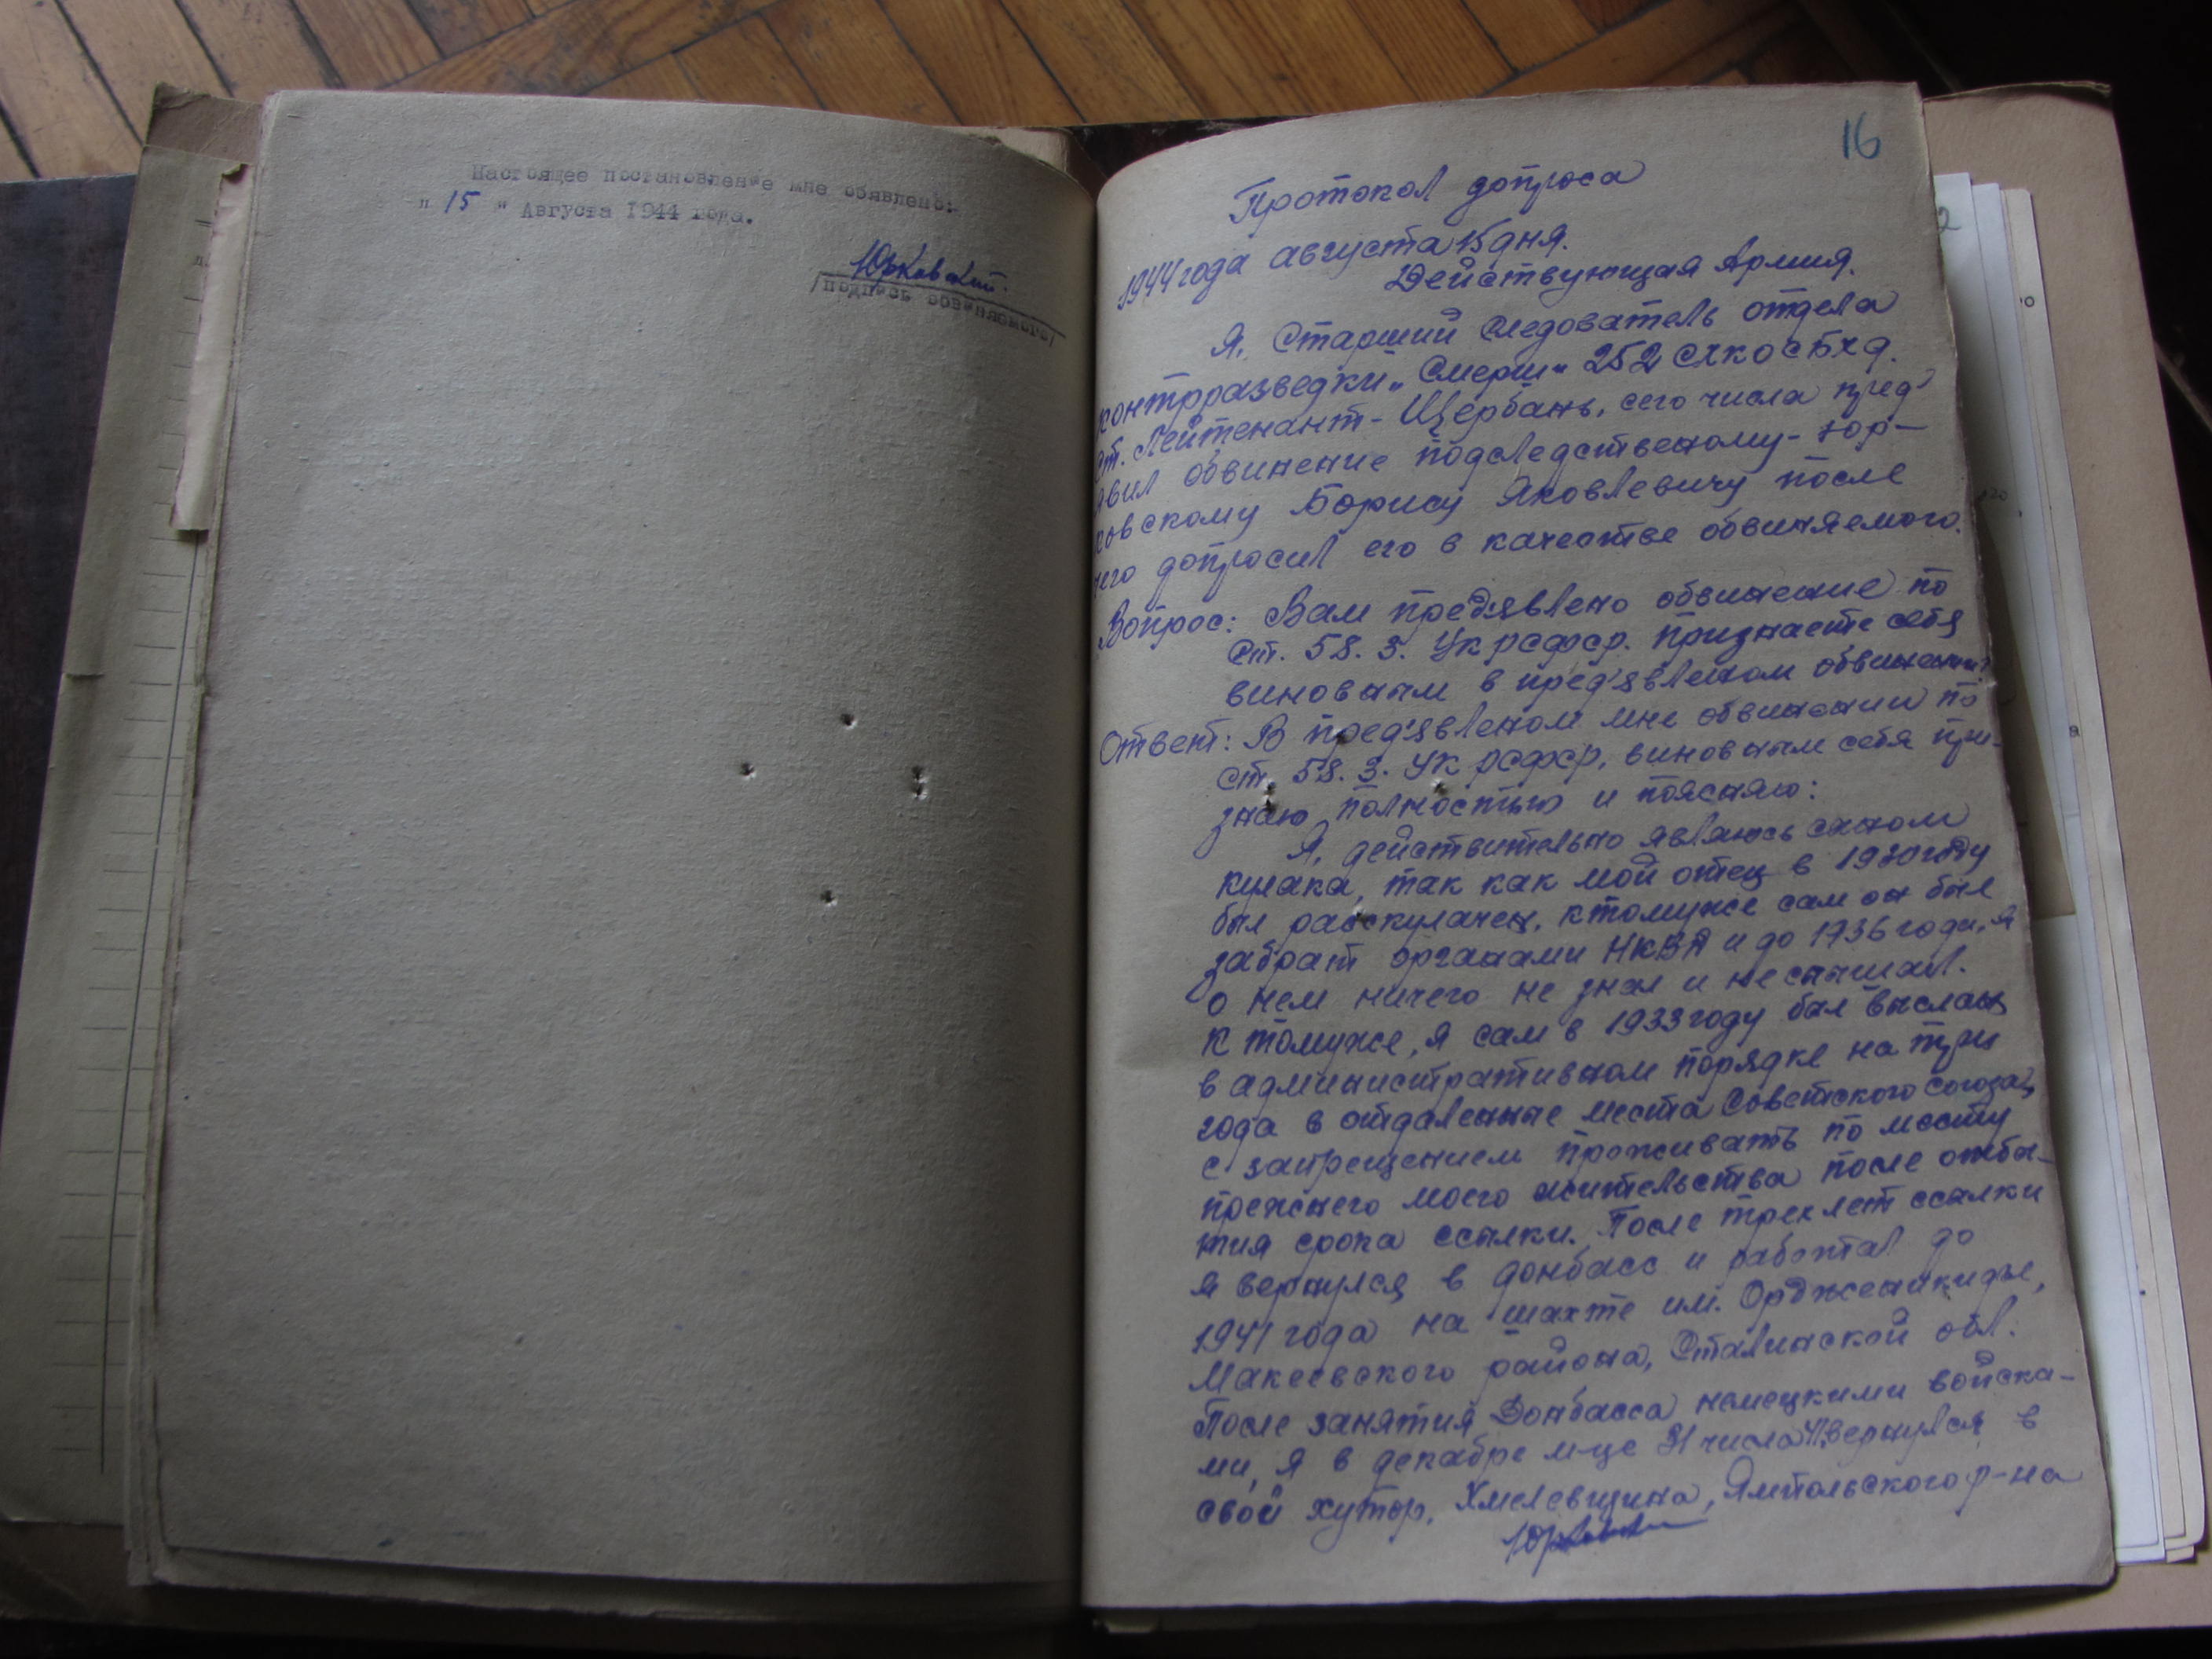 Настоящее постановление мне обявлено:
" 15 " Августа 1944 года.
Юрковский
/подпись обвиняемого/
16
Протокол допроса
1944 года августа 15 дня.
Действующая Армия.
Я, Старший следователь отдела
контрразведки „Смерш" 252 СХКОСБХД.
ст. Лейтенант - Щербань, сего числа пред'
явил обвинение подследственому - Юр-
ковскому Борису Яковлевичу после
чего допросил его в качестве обвиняемого.
Вопрос: Вам предявлено обвинение по
ст. 58. 3. УК РСФСР. Признаете себя
виновным в пред'явленом обвинении?
Ответ: В пред'явленом мне обвинении по
ст. 58. 3. УК РСФСР, виновным себя при-
знаю полностью и поясняю:
Я, действительно являюсь сыном
кулака, так как мой отец в 1930 году
был раскулачен, ктомуже сам он был
забрат органами НКВД и до 1936 года, я
о нем ничего не знал и не слышал.
К томуже, я сам в 1933 году был выслан
в административном порядке на три
года в отдаленные места Советского Союза,
с запрещением проживать по месту
прежнего моего жительства после отбы-
тия срока ссылки. После трех лет ссылки
я вернулся в Донбасс и работал до
1941 года на шахте им. Орджоникидзе,
Макеевского района, Сталинской обл.
После занятия Донбасса немецкими войска-
ми, я в декабре м-це 31 числа 41 вернулся в
свой хутор, Хмелевщина, Ямпольского р-на
Юрковский